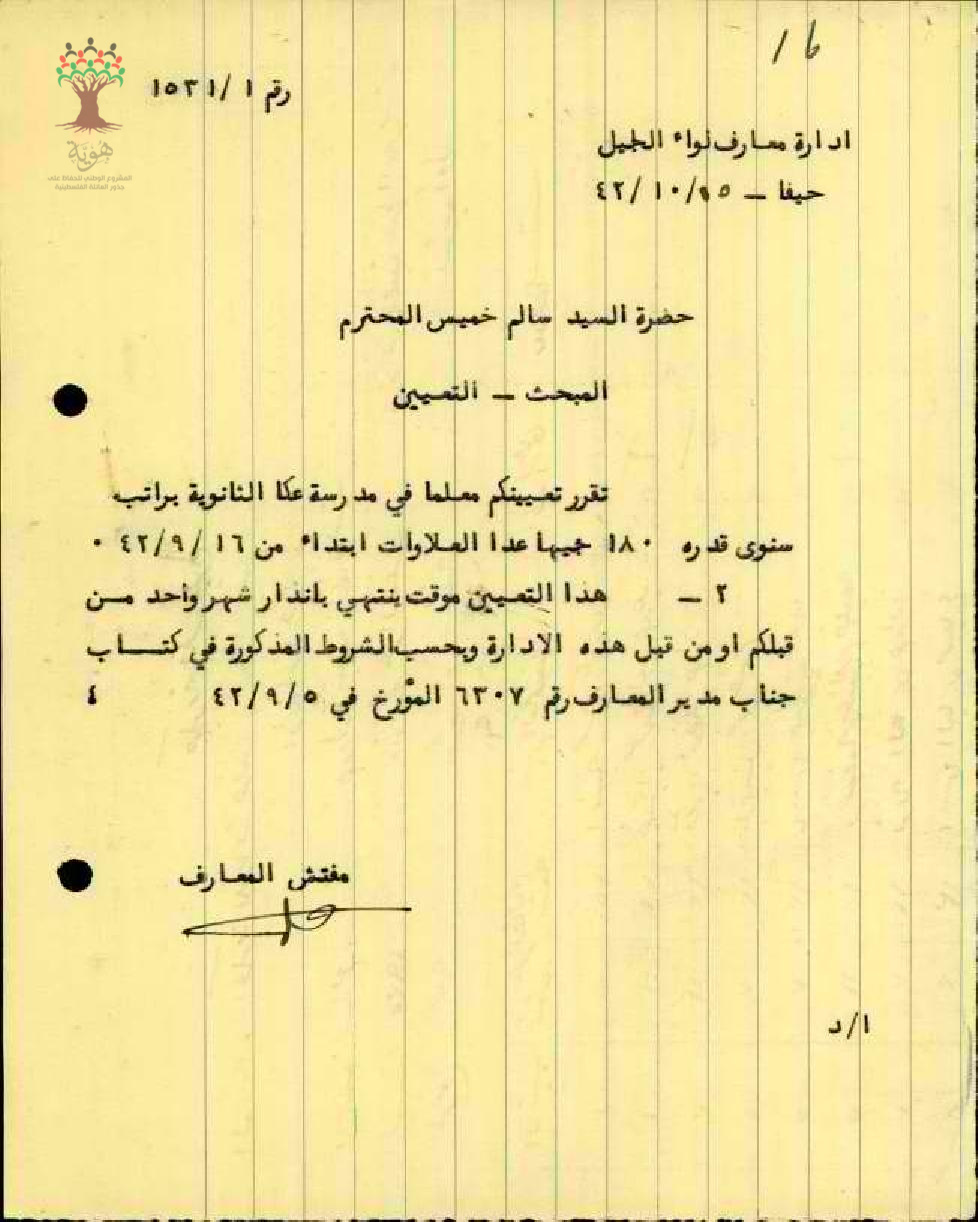 ١٦
رقم ١/١٥٣١
هُوِيَّة
المشروع الوطني للحفاظ على
جذور العائلة الفلسطينية
ادارة معارف لواء الجليل
حيفا – ٤٢/١٠/٢٥
حضرة السيد سالم خميس المحترم
المبحث – التعيين
تقرر تعيينكم معلما في مدرسة عكا الثانوية براتب
سنوى قدره ١٨٠ جنيها عدا العلاوات ابتداء من ٤٢/٩/١٦ ٠
٢ – هذا التعيين موقت ينتهي بانذار شهر واحد من
قبلكم او من قبل هذه الادارة وبحسب الشروط المذكورة في كتـــاب
جناب مدير المعارف رقم ٦٣٠٧ المؤرخ في ٤٢/٩/٥ ٤
مفتش المعارف
ا/د